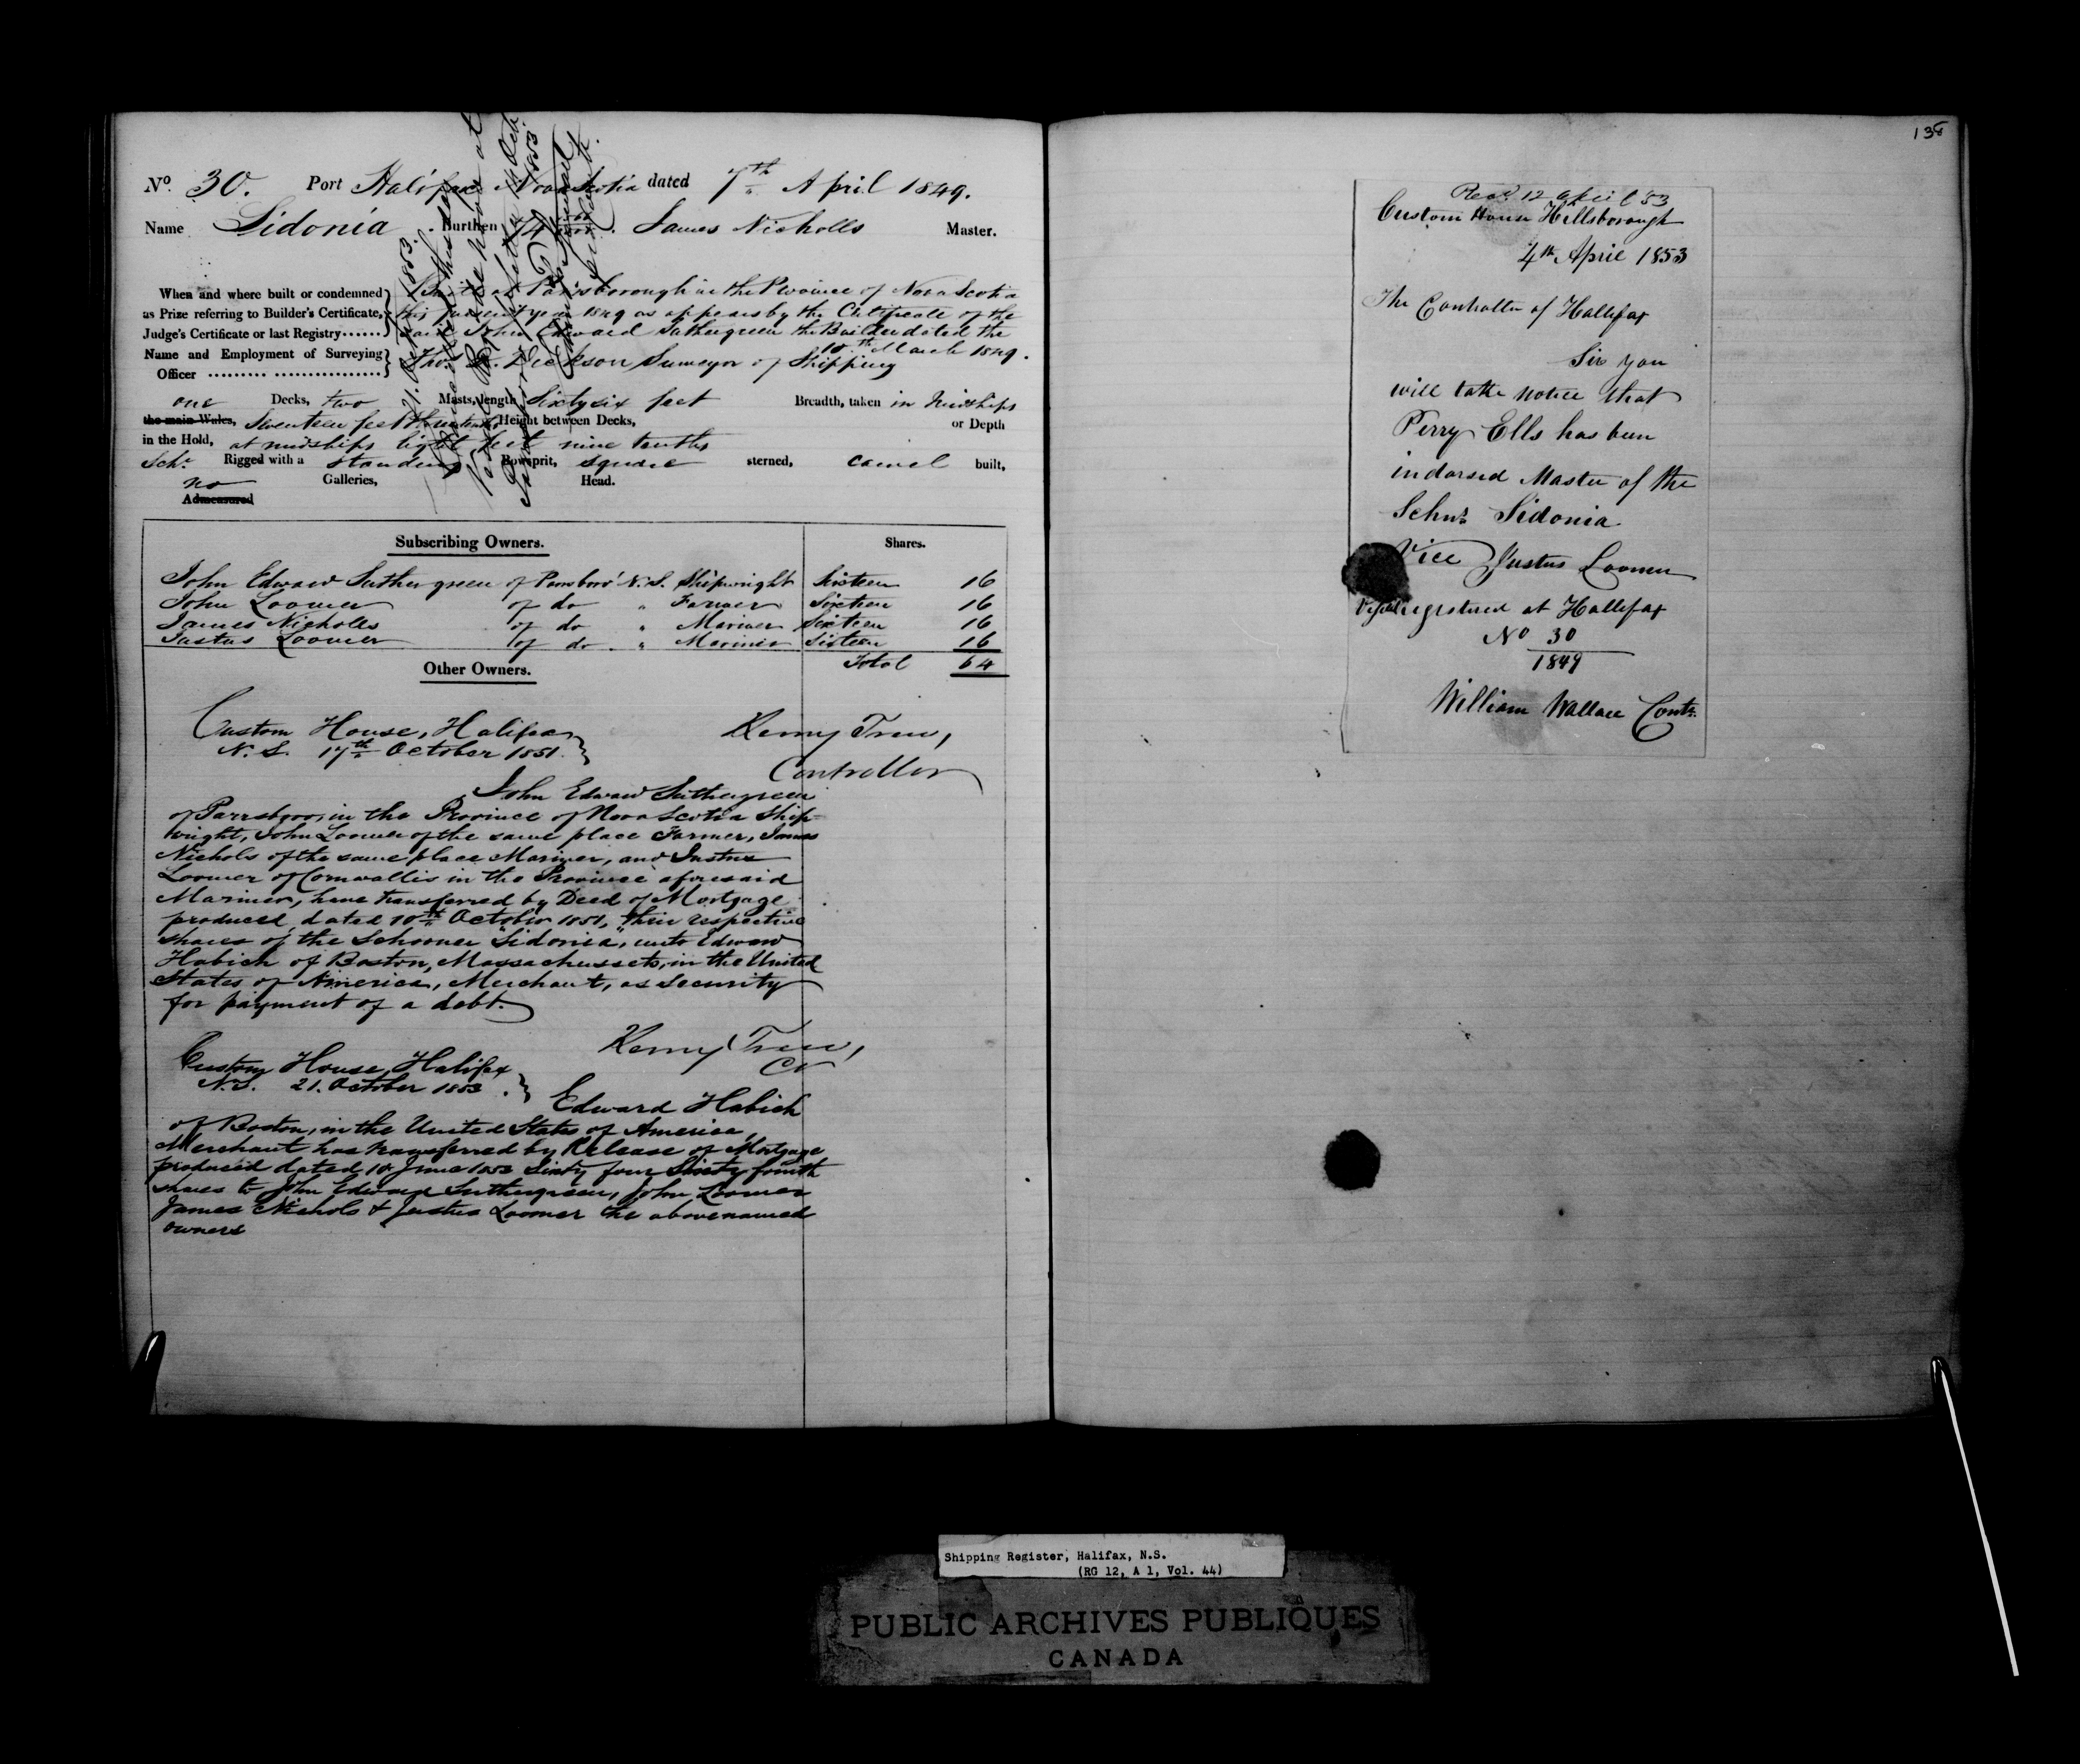 No. 30. Port Halifax Nova Scotia dated 7th April 1849.
Name Sidonia. Burthen 74 James Nicholls Master.
When and where built or condemned
as Prize referring to Builder's Certificate,
Judge's Certificate or last Registry......
Built at Parrsborough in the Province of Nova Scotia
this present year 1849 as appears by the Certificate of the
said John Edward Suthergreen the Builder dated the
10th March 1849.
Name and Employment of Surveying
Officer ......... ................
Thos. Dickson Surveyor of Shipping
one Decks, two Masts, length Sixty six feet Breadth, taken in Midships
the main Wales, Seventeen feet Height between Decks, or Depth
in the Hold, at midships Eight feet nine tenths
Schr. Rigged with a standing Bowsprit, square sterned, carvel built,
no Galleries, Head.
Admeasured
Subscribing Owners. Shares.
John Edward Suthergreen of Parrsboro' N.S. Shipwright Sixteen 16
John Loomer of do " Farmer Sixteen 16
James Nicholls of do " Mariner Sixteen 16
Justus Loomer of do " Mariner Sixteen 16
Other Owners. Total 64
Custom House, Halifax
N.S. 17th October 1851.
Kenny Trew,
Controller
John Edward Suthergreen
of Parrsboro, in the Province of Nova Scotia Ship-
wright, John Loomer of the same place Farmer, James
Nichols of the same place Mariner, and Justus
Loomer of Cornwallis in the Province aforesaid
Mariner, have transferred by Deed of Mortgage
produced, dated 10th October 1851, their respective
shares of the Schooner "Sidonia", unto Edward
Habich of Boston, Massachussets, in the United
States of America, Merchant, as Security
for payment of a debt.
Kenny Trew,
Cr
Custom House, Halifax
N.S. 21. October 1853.
Edward Habich
of Boston, in the United States of America,
Merchant has transferred by Release of Mortgage
produced dated 10 June 1853 Sixty four Sixty fourth
shares to John Edward Suthergreen, John Loomer
James Nichols & Justus Loomer the abovenamed
owners
Recd. 12 April '53
Custom House Hillsborough
4th April 1853
The Controller of Hallifax
Sir you
will take notice that
Perry Ells has been
indorsed Master of the
Schnr Sidonia
Vice Justus Loomer
registered at Hallifax
No 30
1849
William Wallace Contr.
Shipping Register, Halifax, N.S.
(RG 12, A 1, Vol. 44)
PUBLIC ARCHIVES PUBLIQUES
CANADA